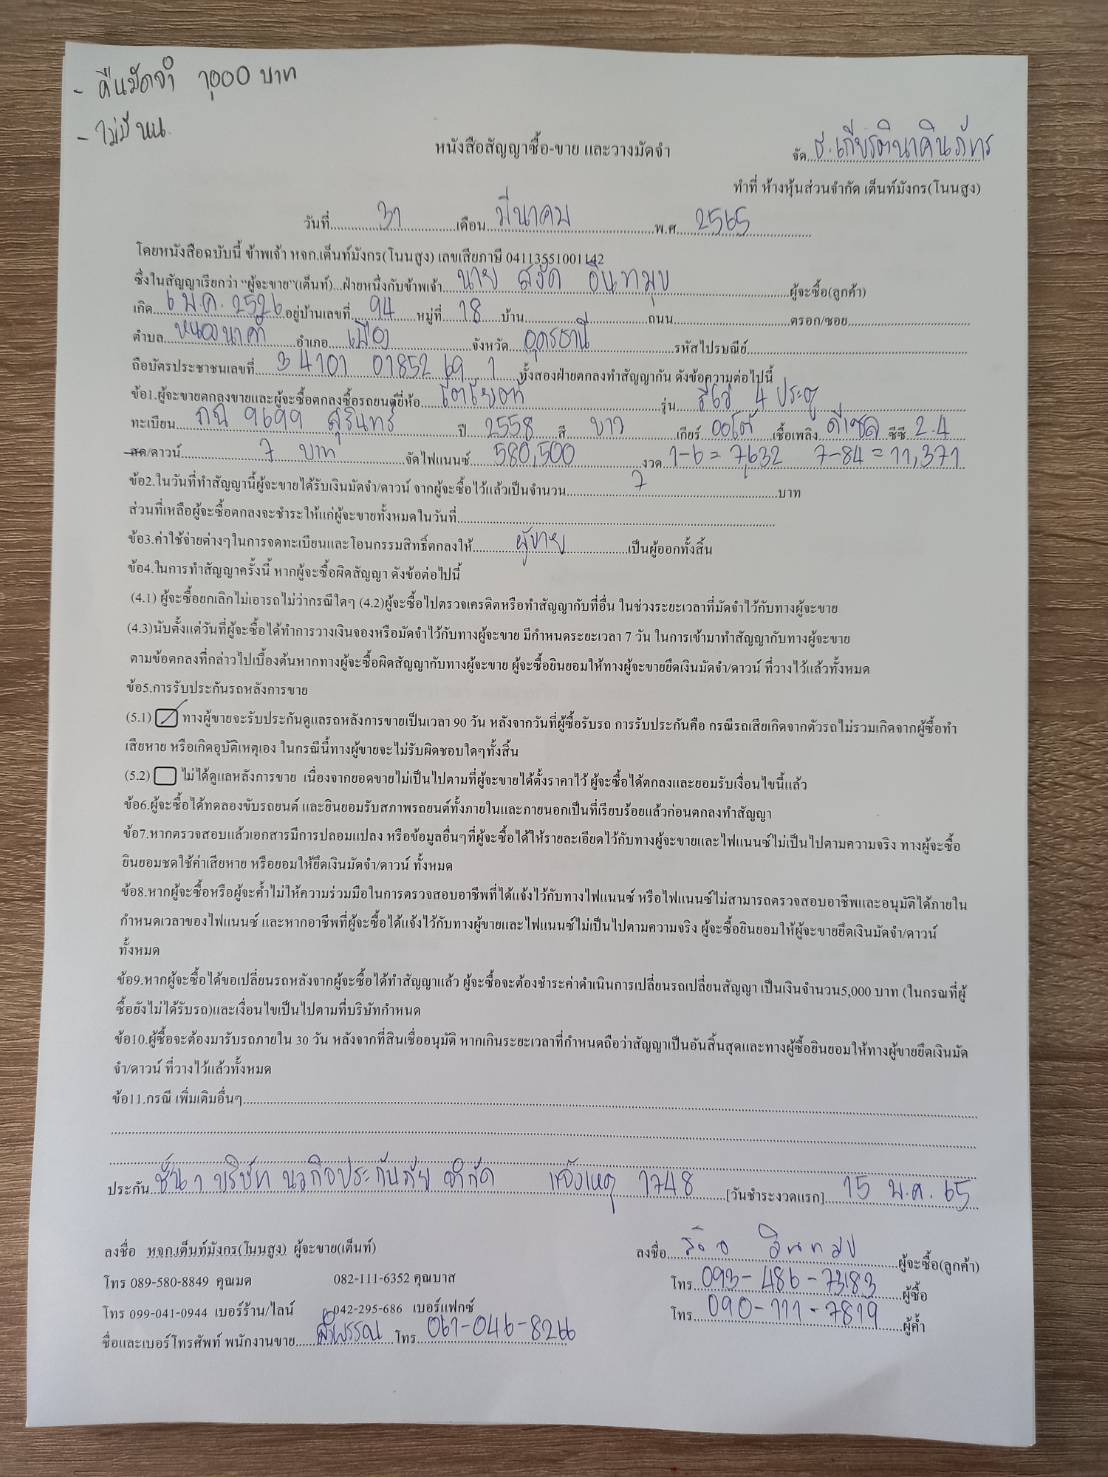 - คืนมัดจำ 1000 บาท
- ไม่มี นน.
หนังสือสัญญาซื้อ-ขาย และวางมัดจำ
จัด ธ.เกียรตินาคินภัทร
ทำที่ ห้างหุ้นส่วนจำกัด เต็นท์มังกร(โนนสูง)
วันที่ 31 เดือน มีนาคม พ.ศ. 2565
โดยหนังสือฉบับนี้ ข้าพเจ้า หจก.เต็นท์มังกร(โนนสูง) เลขเสียภาษี 04113551001142
ซึ่งในสัญญาเรียกว่า "ผู้จะขาย"(เต็นท์)...ฝ่ายหนึ่งกับข้าพเจ้า นาย สงัด อินทมุข ผู้จะซื้อ(ลูกค้า)
เกิด 6 พ.ค. 2526 อยู่บ้านเลขที่ 94 หมู่ที่ 18 บ้าน ถนน ตรอก/ซอย
ตำบล หนองนาคำ อำเภอ เมือง จังหวัด อุดรธานี รหัสไปรษณีย์
ถือบัตรประชาชนเลขที่ 3 4101 01852 69 1 ทั้งสองฝ่ายตกลงทำสัญญากัน ดังข้อความต่อไปนี้
ข้อ1.ผู้จะขายตกลงขายและผู้จะซื้อตกลงซื้อรถยนต์ยี่ห้อ โตโยต้า รุ่น รีโว่ 4 ประตู
ทะเบียน 9699 สุรินทร์ ปี 2558 สี ขาว เกียร์ ออโต้ เชื้อเพลิง ดีเซล ซีซี 2.4
สด/ดาวน์ 7 บาท จัดไฟแนนซ์ 580,500 งวด 1-6 = 7,632 7-84 = 11,371
ข้อ2.ในวันที่ทำสัญญานี้ผู้จะขายได้รับเงินมัดจำ/ดาวน์ จากผู้จะซื้อไว้แล้วเป็นจำนวน 7 บาท
ส่วนที่เหลือผู้จะซื้อตกลงจะชำระให้แก่ผู้จะขายทั้งหมดในวันที่
ข้อ3.ค่าใช้จ่ายต่างๆในการจดทะเบียนและโอนกรรมสิทธิ์ตกลงให้ ผู้ขาย เป็นผู้ออกทั้งสิ้น
ข้อ4.ในการทำสัญญาครั้งนี้ หากผู้จะซื้อผิดสัญญา ดังข้อต่อไปนี้
(4.1) ผู้จะซื้อยกเลิกไม่เอารถไม่ว่ากรณีใดๆ (4.2)ผู้จะซื้อไปตรวจเครดิตหรือทำสัญญากับที่อื่น ในช่วงระยะเวลาที่มัดจำไว้กับทางผู้จะขาย
(4.3)นับตั้งแต่วันที่ผู้จะซื้อได้ทำการวางเงินจองหรือมัดจำไว้กับทางผู้จะขาย มีกำหนดระยะเวลา 7 วัน ในการเข้ามาทำสัญญากับทางผู้จะขาย
ตามข้อตกลงที่กล่าวไปเบื้องต้นหากทางผู้จะซื้อผิดสัญญากับทางผู้จะขาย ผู้จะซื้อยินยอมให้ทางผู้จะขายยึดเงินมัดจำ/ดาวน์ ที่วางไว้แล้วทั้งหมด
ข้อ5.การรับประกันรถหลังการขาย
(5.1) ทางผู้ขายจะรับประกันดูแลรถหลังการขายเป็นเวลา 90 วัน หลังจากวันที่ผู้ซื้อรับรถ การรับประกันคือ กรณีรถเสียเกิดจากตัวรถไม่รวมเกิดจากผู้ซื้อทำ
เสียหาย หรือเกิดอุบัติเหตุเอง ในกรณีนี้ทางผู้ขายจะไม่รับผิดชอบใดๆทั้งสิ้น
(5.2) ไม่ได้ดูแลหลังการขาย เนื่องจากยอดขายไม่เป็นไปตามที่ผู้จะขายได้ตั้งราคาไว้ ผู้จะซื้อได้ตกลงและยอมรับเงื่อนไขนี้แล้ว
ข้อ6.ผู้จะซื้อได้ทดลองขับรถยนต์ และยินยอมรับสภาพรถยนต์ทั้งภายในและภายนอกเป็นที่เรียบร้อยแล้วก่อนตกลงทำสัญญา
ข้อ7.หากตรวจสอบแล้วเอกสารมีการปลอมแปลง หรือข้อมูลอื่นๆที่ผู้จะซื้อได้ให้รายละเอียดไว้กับทางผู้จะขายและไฟแนนซ์ไม่เป็นไปตามความจริง ทางผู้จะซื้อ
ยินยอมชดใช้ค่าเสียหาย หรือยอมให้ยึดเงินมัดจำ/ดาวน์ ทั้งหมด
ข้อ8.หากผู้จะซื้อหรือผู้จะค้ำไม่ให้ความร่วมมือในการตรวจสอบอาชีพที่ได้แจ้งไว้กับทางไฟแนนซ์ หรือไฟแนนซ์ไม่สามารถตรวจสอบอาชีพและอนุมัติได้ภายใน
กำหนดเวลาของไฟแนนซ์ และหากอาชีพที่ผู้จะซื้อได้แจ้งไว้กับทางผู้ขายและไฟแนนซ์ไม่เป็นไปตามความจริง ผู้จะซื้อยินยอมให้ผู้จะขายยึดเงินมัดจำ/ดาวน์
ทั้งหมด
ข้อ9.หากผู้จะซื้อได้ขอเปลี่ยนรถหลังจากผู้จะซื้อได้ทำสัญญาแล้ว ผู้จะซื้อจะต้องชำระค่าดำเนินการเปลี่ยนรถเปลี่ยนสัญญา เป็นเงินจำนวน5,000 บาท (ในกรณที่ผู้
ซื้อยังไม่ได้รับรถ)และเงื่อนไขเป็นไปตามที่บริษัทกำหนด
ข้อ10.ผู้ซื้อจะต้องมารับรถภายใน 30 วัน หลังจากที่สินเชื่ออนุมัติ หากเกินระยะเวลาที่กำหนดถือว่าสัญญาเป็นอันสิ้นสุดและทางผู้ซื้อยินยอมให้ทางผู้ขายยึดเงินมัด
จำ/ดาวน์ ที่วางไว้แล้วทั้งหมด
ข้อ11.กรณี เพิ่มเติมอื่นๆ
ประกัน ชั้น 1 บริษัท นวกิจประกันภัย จำกัด แจ้งเหตุ 1748 [วันชำระงวดแรก] 15 พ.ค. 65
ลงชื่อ หจก.เต็นท์มังกร(โนนสูง) ผู้จะขาย(เต็นท์)
ลงชื่อ สงัด อินทมุข ผู้จะซื้อ(ลูกค้า)
โทร 089-580-8849 คุณมด 082-111-6352 คุณบาส
โทร 093-486-7383 ผู้ซื้อ
โทร 099-041-0944 เบอร์ร้าน/ไลน์ 042-295-686 เบอร์แฟกซ์
โทร 090-111-7819 ผู้ค้ำ
ชื่อและเบอร์โทรศัพท์ พนักงานขาย โทร 061-046-8266